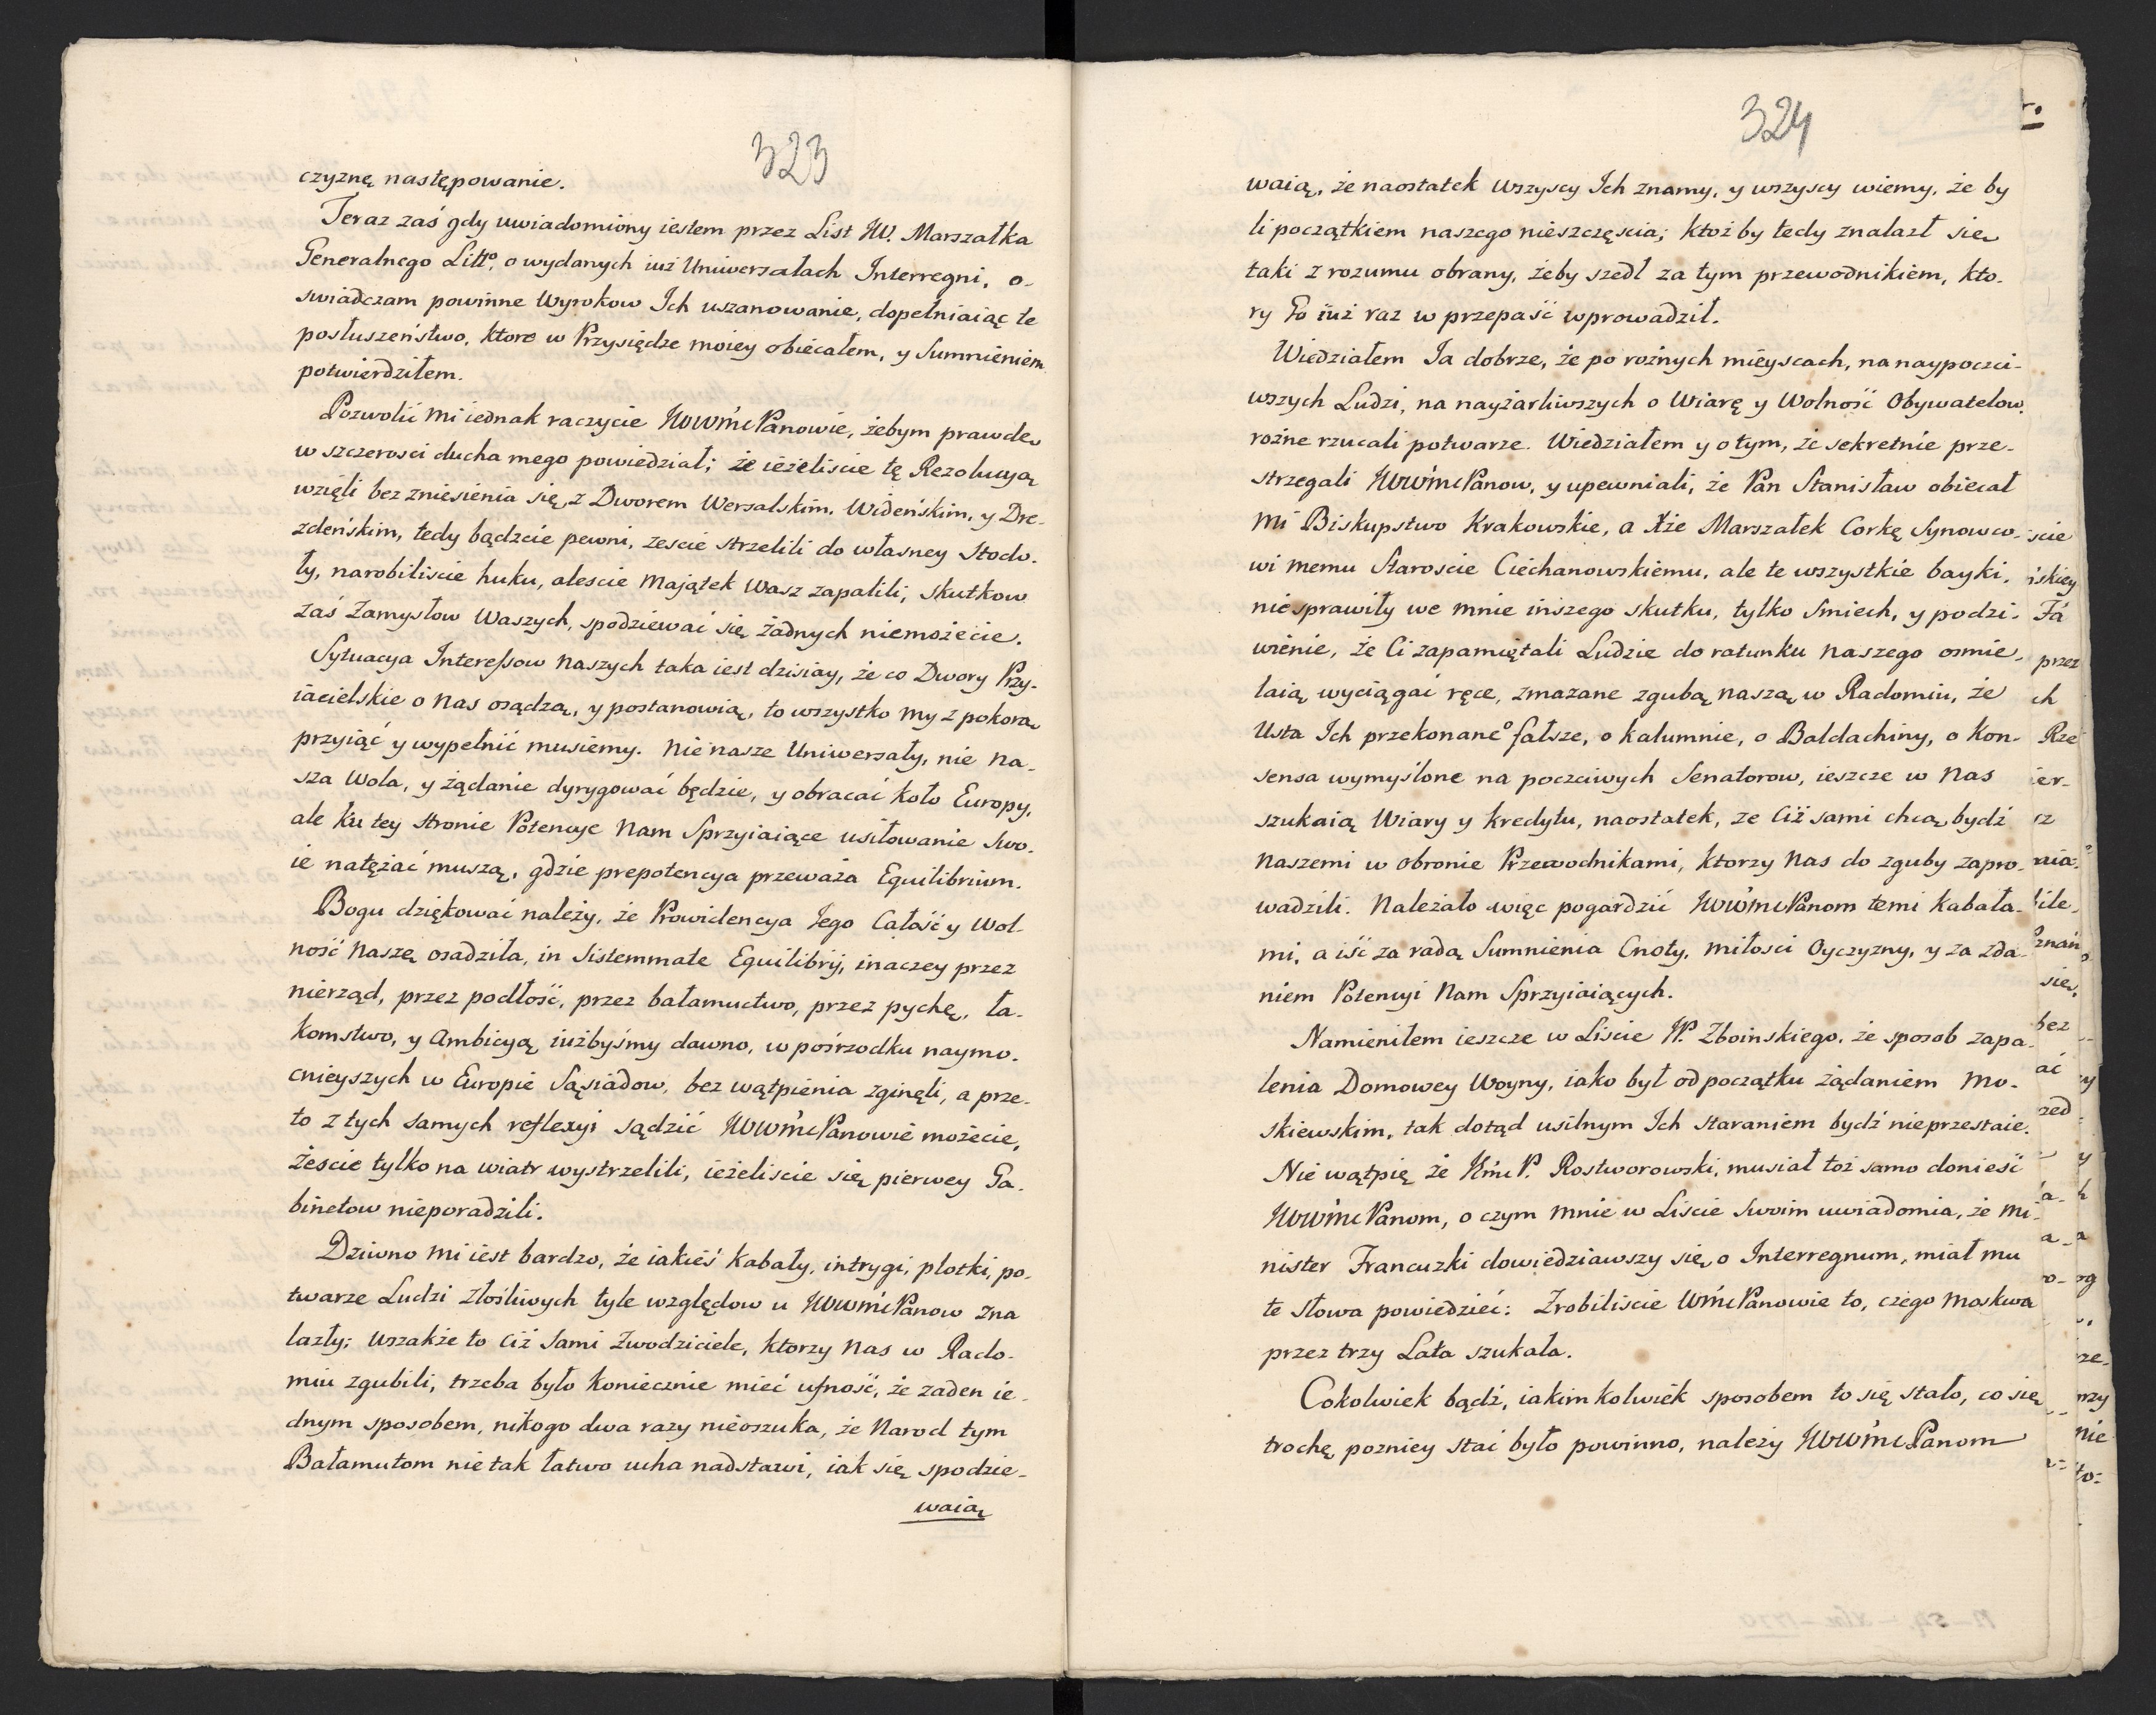 323
czyznę następowanie.
Teraz zaś gdy uwiadomiony iestem przez List JW. Marszałka
Generalnego Litto, o wydanych iuż Uniwersałach Interregni, o-
swiadczam powinne Wyrokow Ich uszanowanie, dopełniaiąc te
posłuszeństwo, ktore w Przysiędze moiey obiecałem, y Sumnieniem
potwierdziłem.
Pozwolić mi iednak raczycie JWWmć Panowie, żebym prawdę
w szczerosci ducha mego powiedział; że ieżeliscie tę Rezolucyą
wzięli bez zniesienia się, z Dworem Wersalskim, Wideńskim, y Dre-
zdeńskim, tedy bądzcie pewni, zescie strzelili do własney Stodo-
ły, narobiliscie huku, alescie Majątek Wasz zapalili, skutkow
zaś Zamysłow Waszych, spodziewać się żadnych niemożecie.
Sytuacya Interessow naszych taka iest dzisiay, że co Dwory Przy-
iacielskie o nas osądzą, y postanowią, to wszystko my z pokorą
przyiąć y wypełnić musiemy. Nie nasze Uniwersały, nie na-
sza Wola, y żądanie dyrygować będzie, y obracać koło Europy,
ale ku tey stronie Potencye nam Sprzyiaiące usiłowanie swo-
ie natężać muszą, gdzie prepotencya przeważa Equilibrium.
Bogu dziękować należy, że Prowidencya Jego Całość y Wol-
ność naszę osadziła, in Sistemmate Equilibrij, inaczey przez
nierząd, przez podłość, przez bałamuctwo, przez pychę, ła-
komstwo, y ambicyą iużbyśmy dawno, w pośrzodku naymo-
cnieyszych w Europie Sąsiadow, bez wątpienia zginęli, a prze-
to z tych samych reflexyi sądzić JWWmć Panowie możecie,
Żescie tylko na wiatr wystrzelili, ieżeliscie się pierwey Ga-
binetow nieporadzili.
Dziwno mi iest bardzo, że iakieś kabały, intrygi, plotki, po-
twarze Ludzi złośliwych tyle względow u JWWmć Panow zna
lazły; wszakże to Ciż Sami Zwodziciele, ktorzy nas w Rado-
miu zgubili, trzeba było koniecznie mieć ufność, że zaden ie-
dnym sposobem, nikogo dwa razy nieoszuka, że Narod tym
Bałamutom nie tak łatwo ucha nadstawi, iak się spodzie-
waią
324
waią, że naostatek wszyscy Ich znamy, y wszyscy wiemy, że by
li początkiem naszego nieszczęscia; ktoż by tedy znalazł się
taki z rozumu obrany, żeby szedł za tym przewodnikiem, kto-
ry Go iuż raz w przepaść wprowadził.
Wiedziałem Ja dobrze, że po rożnych mieyscach, na naypoczci-
wszych Ludzi, na nayżarliwszych o Wiarę y Wolność Obywatelow,
rożne rzucali potwarze. Wiedziałem y o tym, że sekretnie prze-
strzegali JWWmć Panow, y upewniali, że Pan Stanisław obiecał
mi Biskupstwo Krakowskie, a Xże Marszałek Corkę Synowco-
wi memu Staroscie Ciechanowskiemu, ale te wszystkie bayki,
nie sprawiły we mnie inszego skutku, tylko Smiech, y podzi-
wienie, że Ci zapamiętali Ludzie do ratunku naszego osmie-
laią wyciągać ręce, zmazane zgubą naszą w Radomiu, że
Usta Ich przekonane o fałsze, o kalumnie, o Baldachiny, o Kon-
sensa wymyślone na poczciwych Senatorow, ieszcze w nas
szukaią Wiary y kredytu, naostatek, ze Ciż sami chcą bydź
naszemi w obronie Przewodnikami, ktorzy nas do zguby zapro-
wadzili. Należało więc pogardzić JWWmć Panom temi kabała-
mi, a iść za radą Sumnienia Cnoty, miłosci Oyczyzny, y za zda-
niem Potencyi Nam Sprzyiaiących.
Namieniłem ieszcze w Liscie W. P. Zboinskiego, że sposob zapa-
lenia Domowey Woyny, iako był od początku żądaniem Mo-
skiewskim, tak dotąd usilnym Ich staraniem bydź nieprzestaie.
Nie wątpię, że Jmć P. Rostworowski, musiał toż samo donieść
JWWmć Panom, o czym mnie w Liscie Swoim uwiadomia, że mi-
nister Francuzki dowiedziawszy się, o Interregnum, miał mu
te słowa powiedzieć: Zrobiliscie Wmć Panowie to, czego Moskwa
przez trzy Lata szukała.
Cokolwiek bądź, iakimkolwiek sposobem to się stało, co się
trochę pozniey stać było powinno, należy JWWmć Panom